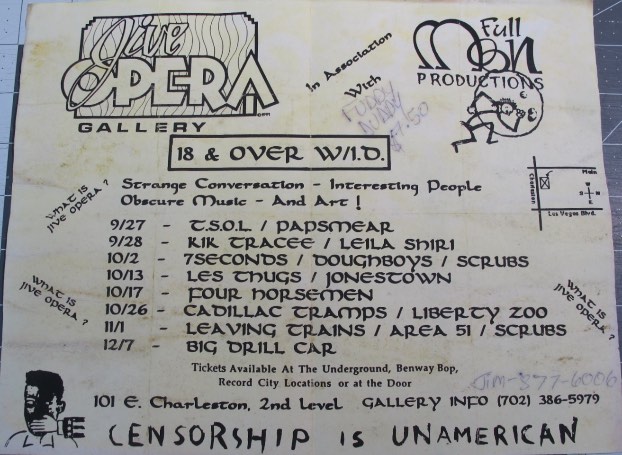 Jive
OPERA
GALLERY
In Association
With
Full
Moon
PRODUCTIONS
FUDDY
DUDDY
$7.50
18 & OVER W/I.D.
Strange Conversation - Interesting People
Obscure Music - And Art !
WHAT IS
JIVE OPERA ?
Main
Charleston
Las Vegas Blvd.
9/27 - T.S.O.L. / PAPSMEAR
9/28 - KIK TRACEE / LEILA SHIRI
10/2 - 7SECONDS / DOUGHBOYS / SCRUBS
10/13 - LES THUGS / JONESTOWN
10/17 - FOUR HORSEMEN
10/26 - CADILLAC TRAMPS / LIBERTY ZOO
11/1 - LEAVING TRAINS / AREA 51 / SCRUBS
12/7 - BIG DRILL CAR
WHAT IS
JIVE OPERA ?
WHAT IS
JIVE OPERA ?
Tickets Available At The Underground, Benway Bop,
Record City Locations or at the Door
JIM-377-6006
101 E. Charleston, 2nd Level GALLERY INFO (702) 386-5979
CENSORSHIP is UNAMERICAN